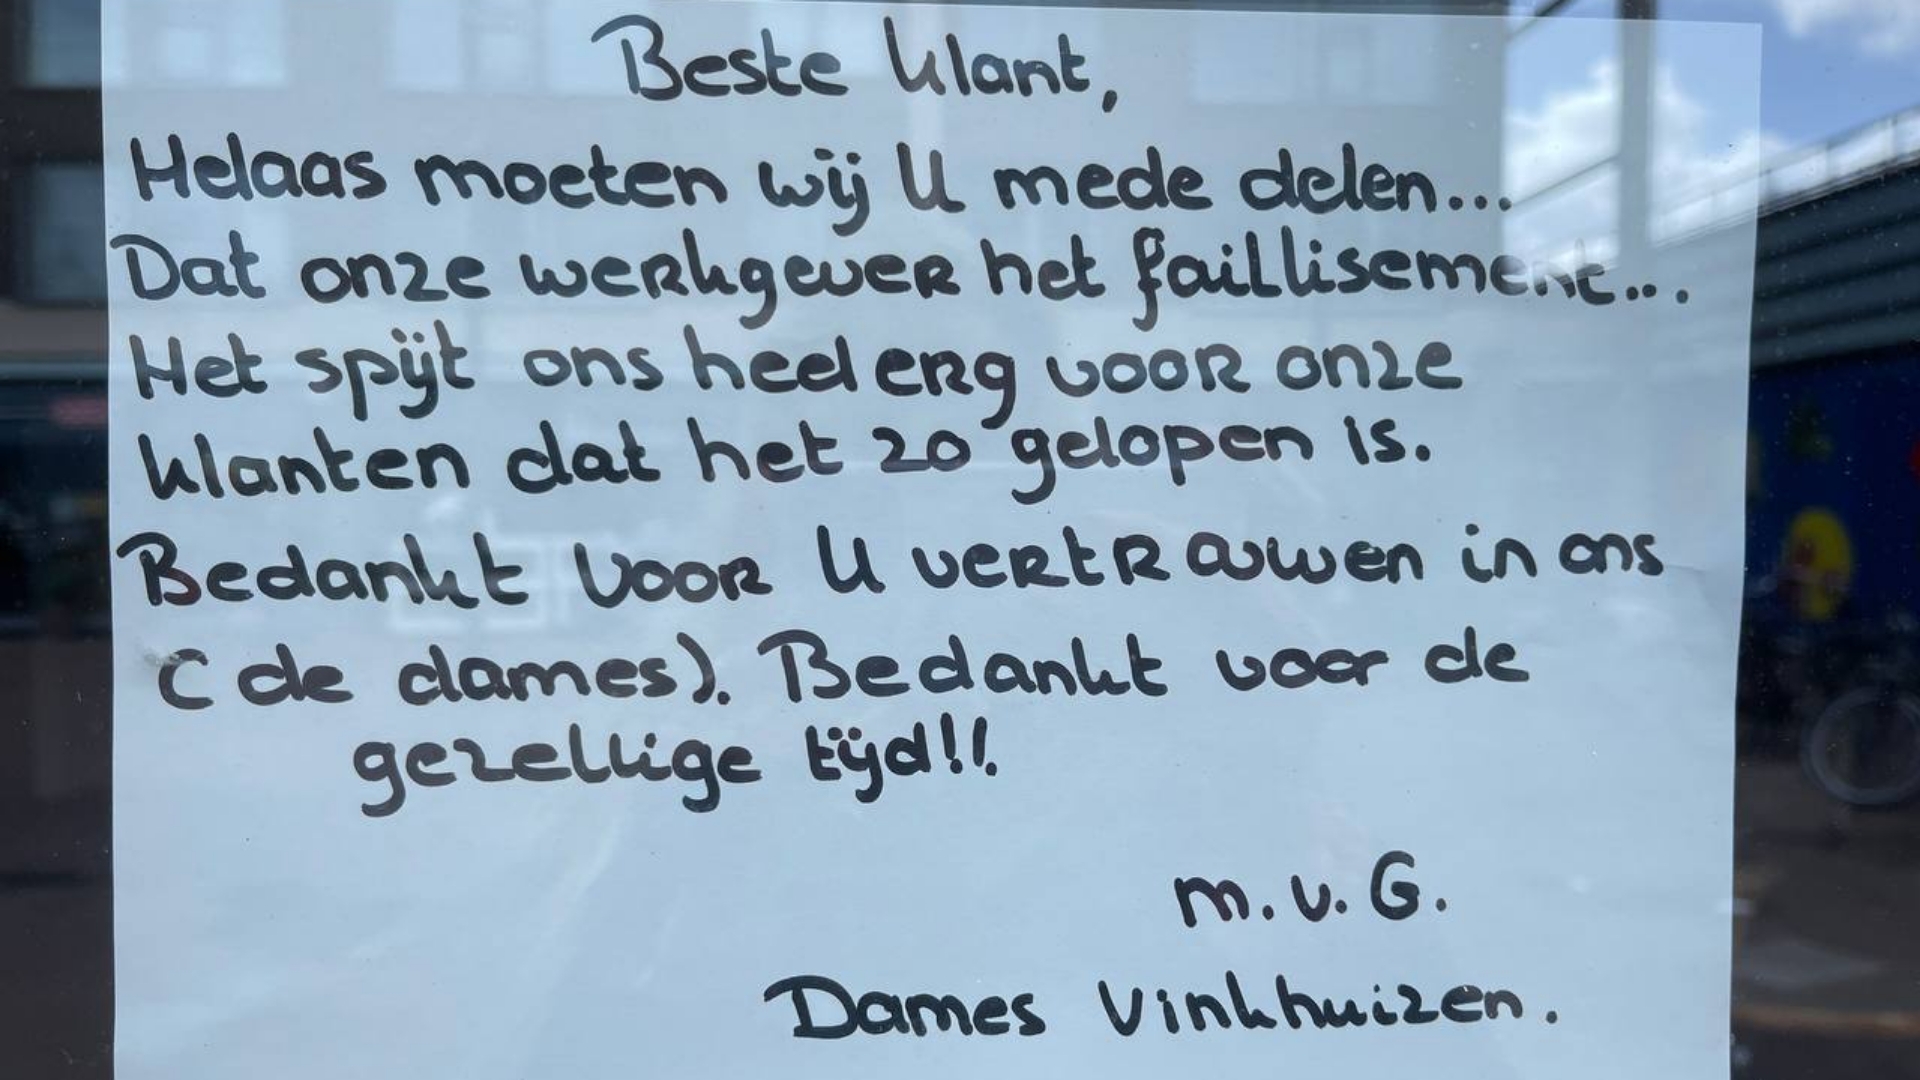 Beste klant,
Helaas moeten wij U mede delen...
Dat onze werkgever het faillisement...
Het spijt ons heel erg voor onze
klanten dat het zo gelopen is.
Bedankt voor U vertrauwen in ons
(de dames). Bedankt voor de
gezellige tijd!!
m.v.G.
Dames Vinkhuizen.